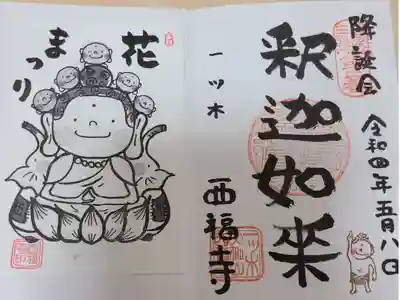 降誕会
令和四年五月八日
釈迦如来
一ツ木
西福寺
花
まつり